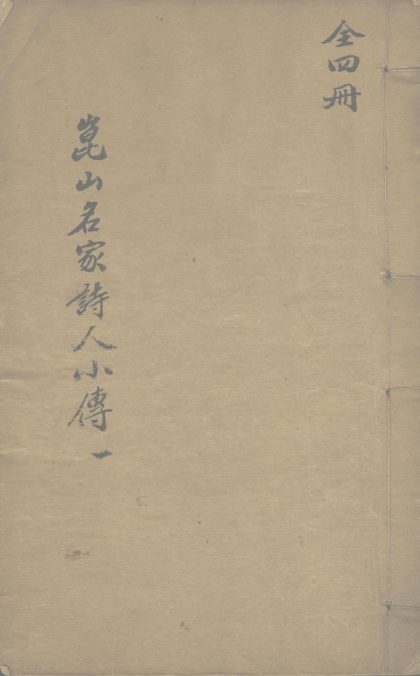 全四冊
崑山名家詩人小傳 一